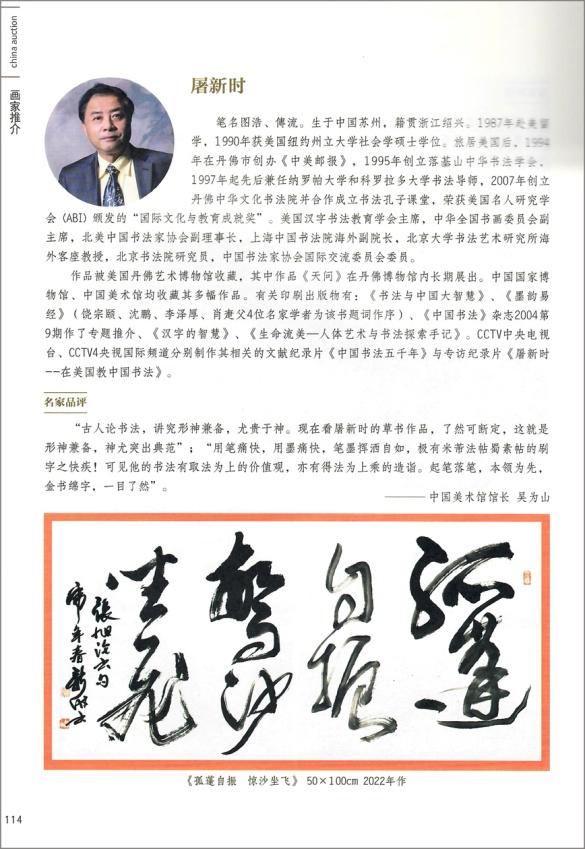 china auction
画家推介
屠新时
笔名图浩、傅流。生于中国苏州，籍贯浙江绍兴。1987年赴美留
学，1990年获美国纽约州立大学社会学硕士学位。旅居美国后，1994
年在丹佛市创办《中美邮报》，1995年创立落基山中华书法学会，
1997年起先后兼任纳罗帕大学和科罗拉多大学书法导师，2007年创立
丹佛中华文化书法院并合作成立书法孔子课堂，荣获美国名人研究学
会（ABI）颁发的“国际文化与教育成就奖”。美国汉字书法教育学会主席，中华全国书画委员会副
主席，北美中国书法家协会副理事长，上海中国书法院海外副院长，北京大学书法艺术研究所海
外客座教授，北京书法院研究员，中国书法家协会国际交流委员会委员。
作品被美国丹佛艺术博物馆收藏，其中作品《天问》在丹佛博物馆内长期展出。中国国家博
物馆、中国美术馆均收藏其多幅作品。有关印刷出版物有：《书法与中国大智慧》、《墨韵易
经》（饶宗颐、沈鹏、李泽厚、肖疌父4位名家学者为该书题词作序）、《中国书法》杂志2004第
9期作了专题推介、《汉字的智慧》、《生命流美—人体艺术与书法探索手记》。CCTV中央电视
台、CCTV4央视国际频道分别制作其相关的文献纪录片《中国书法五千年》与专访纪录片《屠新时
--在美国教中国书法》。
名家品评
“古人论书法，讲究形神兼备，尤贵于神。现在看屠新时的草书作品，了然可断定，这就是
形神兼备，神尤突出典范”；“用笔痛快，用墨痛快，笔墨挥洒自如，极有米芾法帖蜀素帖的刷
字之快疾！可见他的书法有取法为上的价值观，亦有得法为上乘的造诣。起笔落笔，本领为先，
金书绵字，一目了然”。
———中国美术馆馆长 吴为山
孤蓬
自振
惊沙
坐飞
張旭论书句
《孤蓬自振 惊沙坐飞》 50×100cm 2022年作
114